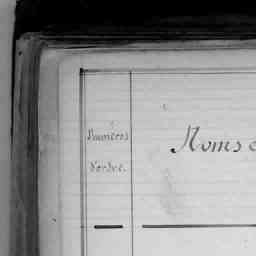 Numéros
d'ordre.
Noms e